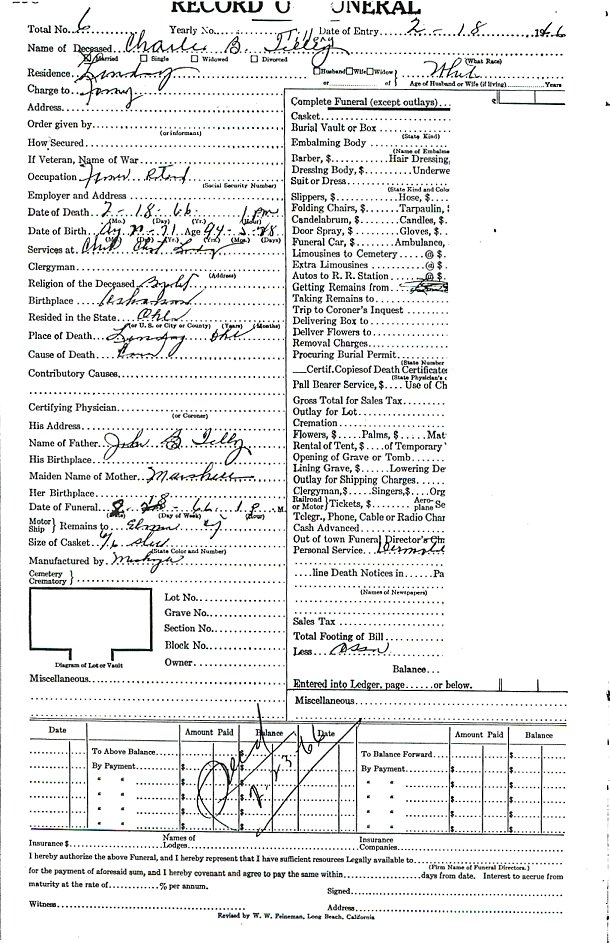 RECORD O UNERAL
Total No. 6 Yearly No. Date of Entry 2 - 18 1966
Name of Deceased Charlie B. Tilley
Married Single Widowed Divorced
Residence Lindsay Husband Wife Widow White (What Race)
or of Age of Husband or Wife (if living) Years
Charge to Family
Address
Order given by
(or informant)
How Secured
If Veteran, Name of War
Occupation Farmer Retired
(Social Security Number)
Employer and Address
Date of Death 2 - 18 - 66 1 pm
(Mo.) (Day) (Yr.) (Hour)
Date of Birth Aug 71 Age 94 - 5 - 28
(Mo.) (Day) (Yr.) (Yrs.) (Mos.) (Days)
Services at
Clergyman
(Address)
Religion of the Deceased Baptist
Birthplace Arkansas
Resided in the State Okla
(or U. S. or City or County) (Years) (Months)
Place of Death Lindsay Okl
Cause of Death
Contributory Causes
Certifying Physician
(or Coroner)
His Address
Name of Father John B Tilley
His Birthplace
Maiden Name of Mother
Her Birthplace
Date of Funeral 2 - 18 - 66 1 P M
(Date) (Day of Week) (Hour)
Motor Ship } Remains to
Size of Casket 6/6
(State Color and Number)
Manufactured by
Cemetery Crematory }
Lot No.
Grave No.
Section No.
Block No.
Owner
Diagram of Lot or Vault
Miscellaneous
Complete Funeral (except outlays)
Casket
Burial Vault or Box
(State Kind)
Embalming Body
(Name of Embalme
Barber, $ Hair Dressing,
Dressing Body, $ Underwe
Suit or Dress
(State Kind and Colo
Slippers, $ Hose, $
Folding Chairs, $ Tarpaulin, $
Candelabrum, $ Candles, $
Door Spray, $ Gloves, $
Funeral Car, $ Ambulance,
Limousines to Cemetery @ $
Extra Limousines @ $
Autos to R. R. Station @ $
Getting Remains from
Taking Remains to
Trip to Coroner's Inquest
Delivering Box to
Deliver Flowers to
Removal Charges
Procuring Burial Permit
(State Number
Certif. Copies of Death Certificate
(State Physician's
Pall Bearer Service, $ Use of Ch
Gross Total for Sales Tax
Outlay for Lot
Cremation
Flowers, $ Palms, $ Mat
Rental of Tent, $ of Temporary
Opening of Grave or Tomb
Lining Grave, $ Lowering De
Outlay for Shipping Charges
Clergyman, $ Singers, $ Org
Railroad or Motor } Tickets, $ Aero-plane Se
Telegr., Phone, Cable or Radio Char
Cash Advanced
Out of town Funeral Director's Ch
Personal Service
line Death Notices in Pa
(Names of Newspapers)
Sales Tax
Total Footing of Bill
Less
Balance
Entered into Ledger, page or below.
Miscellaneous
Date Amount Paid Balance Date Amount Paid Balance
To Above Balance $ To Balance Forward $
By Payment $ By Payment $
" " $ " " $
" " $ " " $
" " $ " " $
" " $ " " $
Insurance $ Names of Lodges Insurance Companies
I hereby authorize the above Funeral, and I hereby represent that I have sufficient resources Legally available to
(Firm Name of Funeral Directors.)
for the payment of aforesaid sum, and I hereby covenant and agree to pay the same within days from date. Interest to accrue from
maturity at the rate of % per annum.
Signed
Witness Address
Revised by W. W. Feineman, Long Beach, California